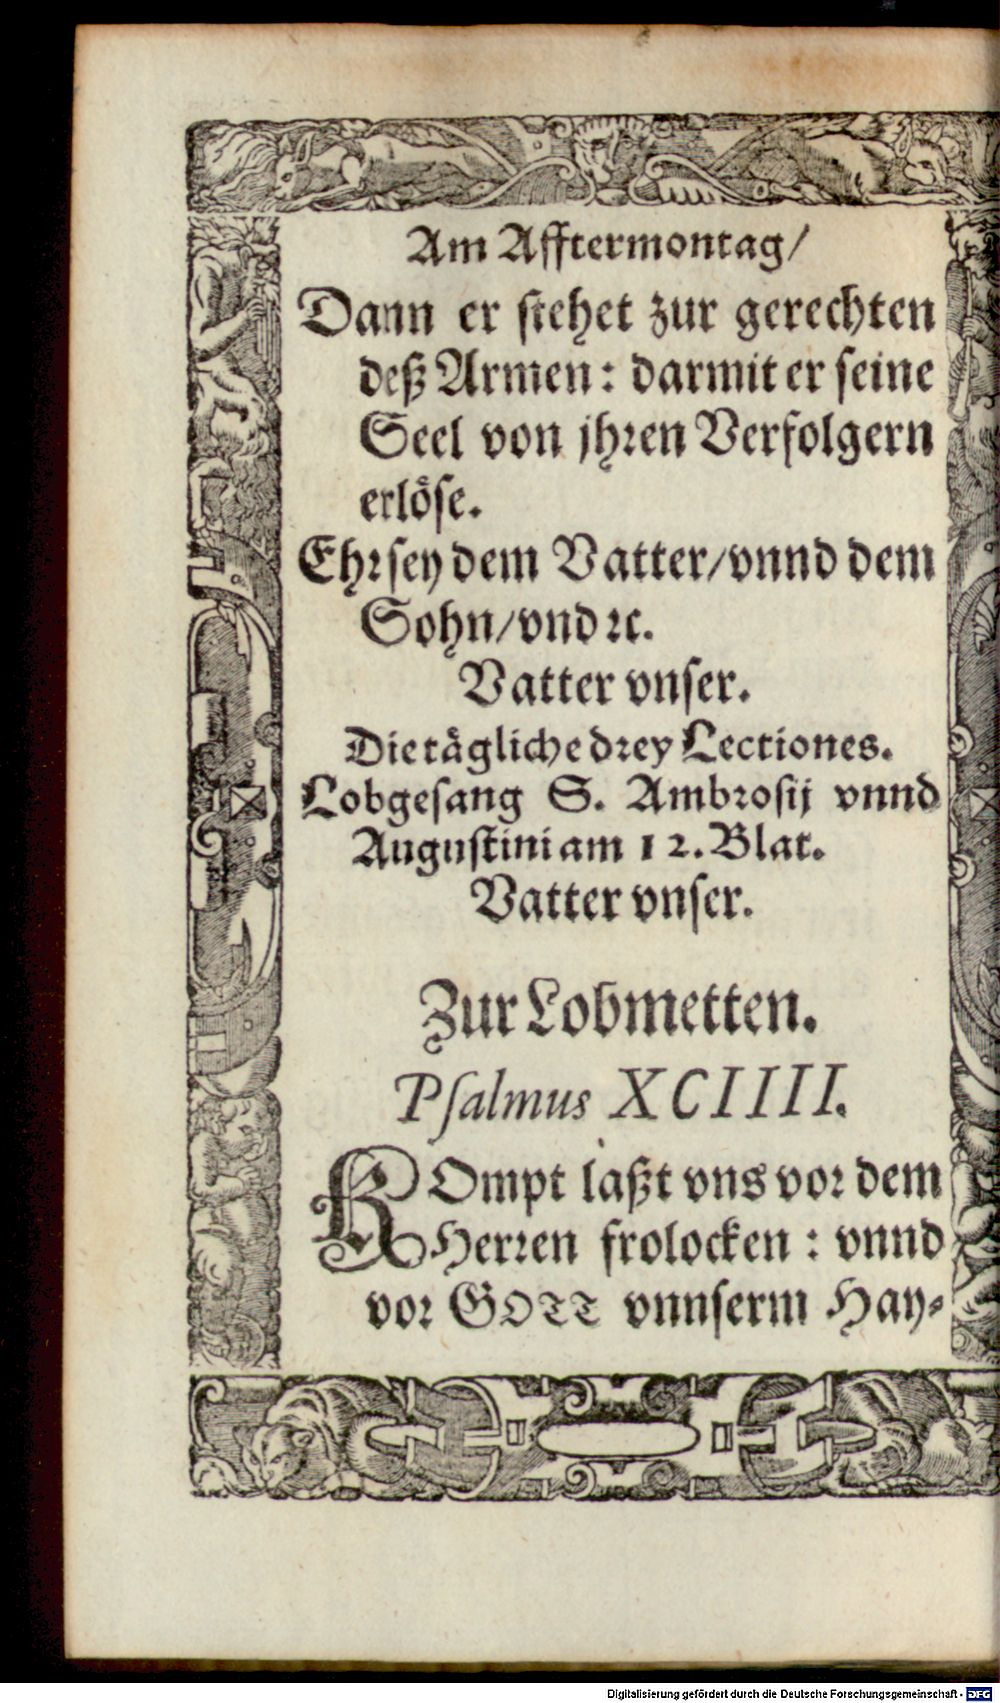 Am Afftermontag/
Dann er stehet zur gerechten
deß Armen: darmit er seine
Seel von jhren Verfolgern
erlöse.
Ehr sey dem Vatter/vnnd dem
Sohn/vnd ꝛc.
Vatter vnser.
Die tägliche drey Lectiones.
Lobgesang S. Ambrosij vnnd
Augustini am 12. Blat.
Vatter vnser.
Zur Lobmetten.
Psalmus XCIIII.
KOmpt laßt vns vor dem
Herren frolocken: vnnd
vor GOTT vnnserm Hay-
Digitalisierung gefördert durch die Deutsche Forschungsgemeinschaft - DFG